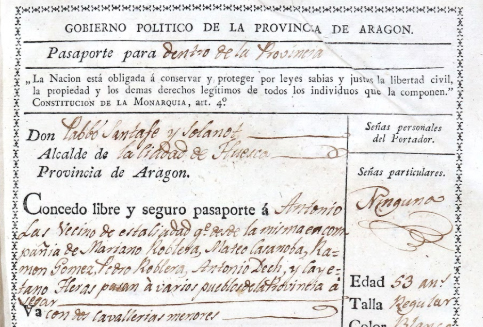 GOBIERNO POLITICO DE LA PROVINCIA DE ARAGON.
Pasaporte para dentro de la Provincia
„La Nacion está obligada á conservar y proteger por leyes sabias y justas la libertad civil,
la propiedad y los demas derechos legítimos de todos los individuos que la componen."
CONSTITUCION DE LA MONARQUIA, art. 4º
Don Pabló Santafe y Solanot
Alcalde de la Ciudad de Huesca
Provincia de Aragon.
Concedo libre y seguro pasaporte á Antonio
Las Vecino de esta Ciudad qe. desde la misma en com
pañia de Mariano Roblera, Mateo Casanoba, Ra-
mon Gomez, Pedro Roblera, Antonio Dech, y Caye-
tano Heras pasan à varios pueblos de la Provincia à
segar
Va con dos cavallerias menores
Señas personales
del Portador.
Señas particulares.
Ninguna
Edad 53 ans
Talla Regular
Color Blanco